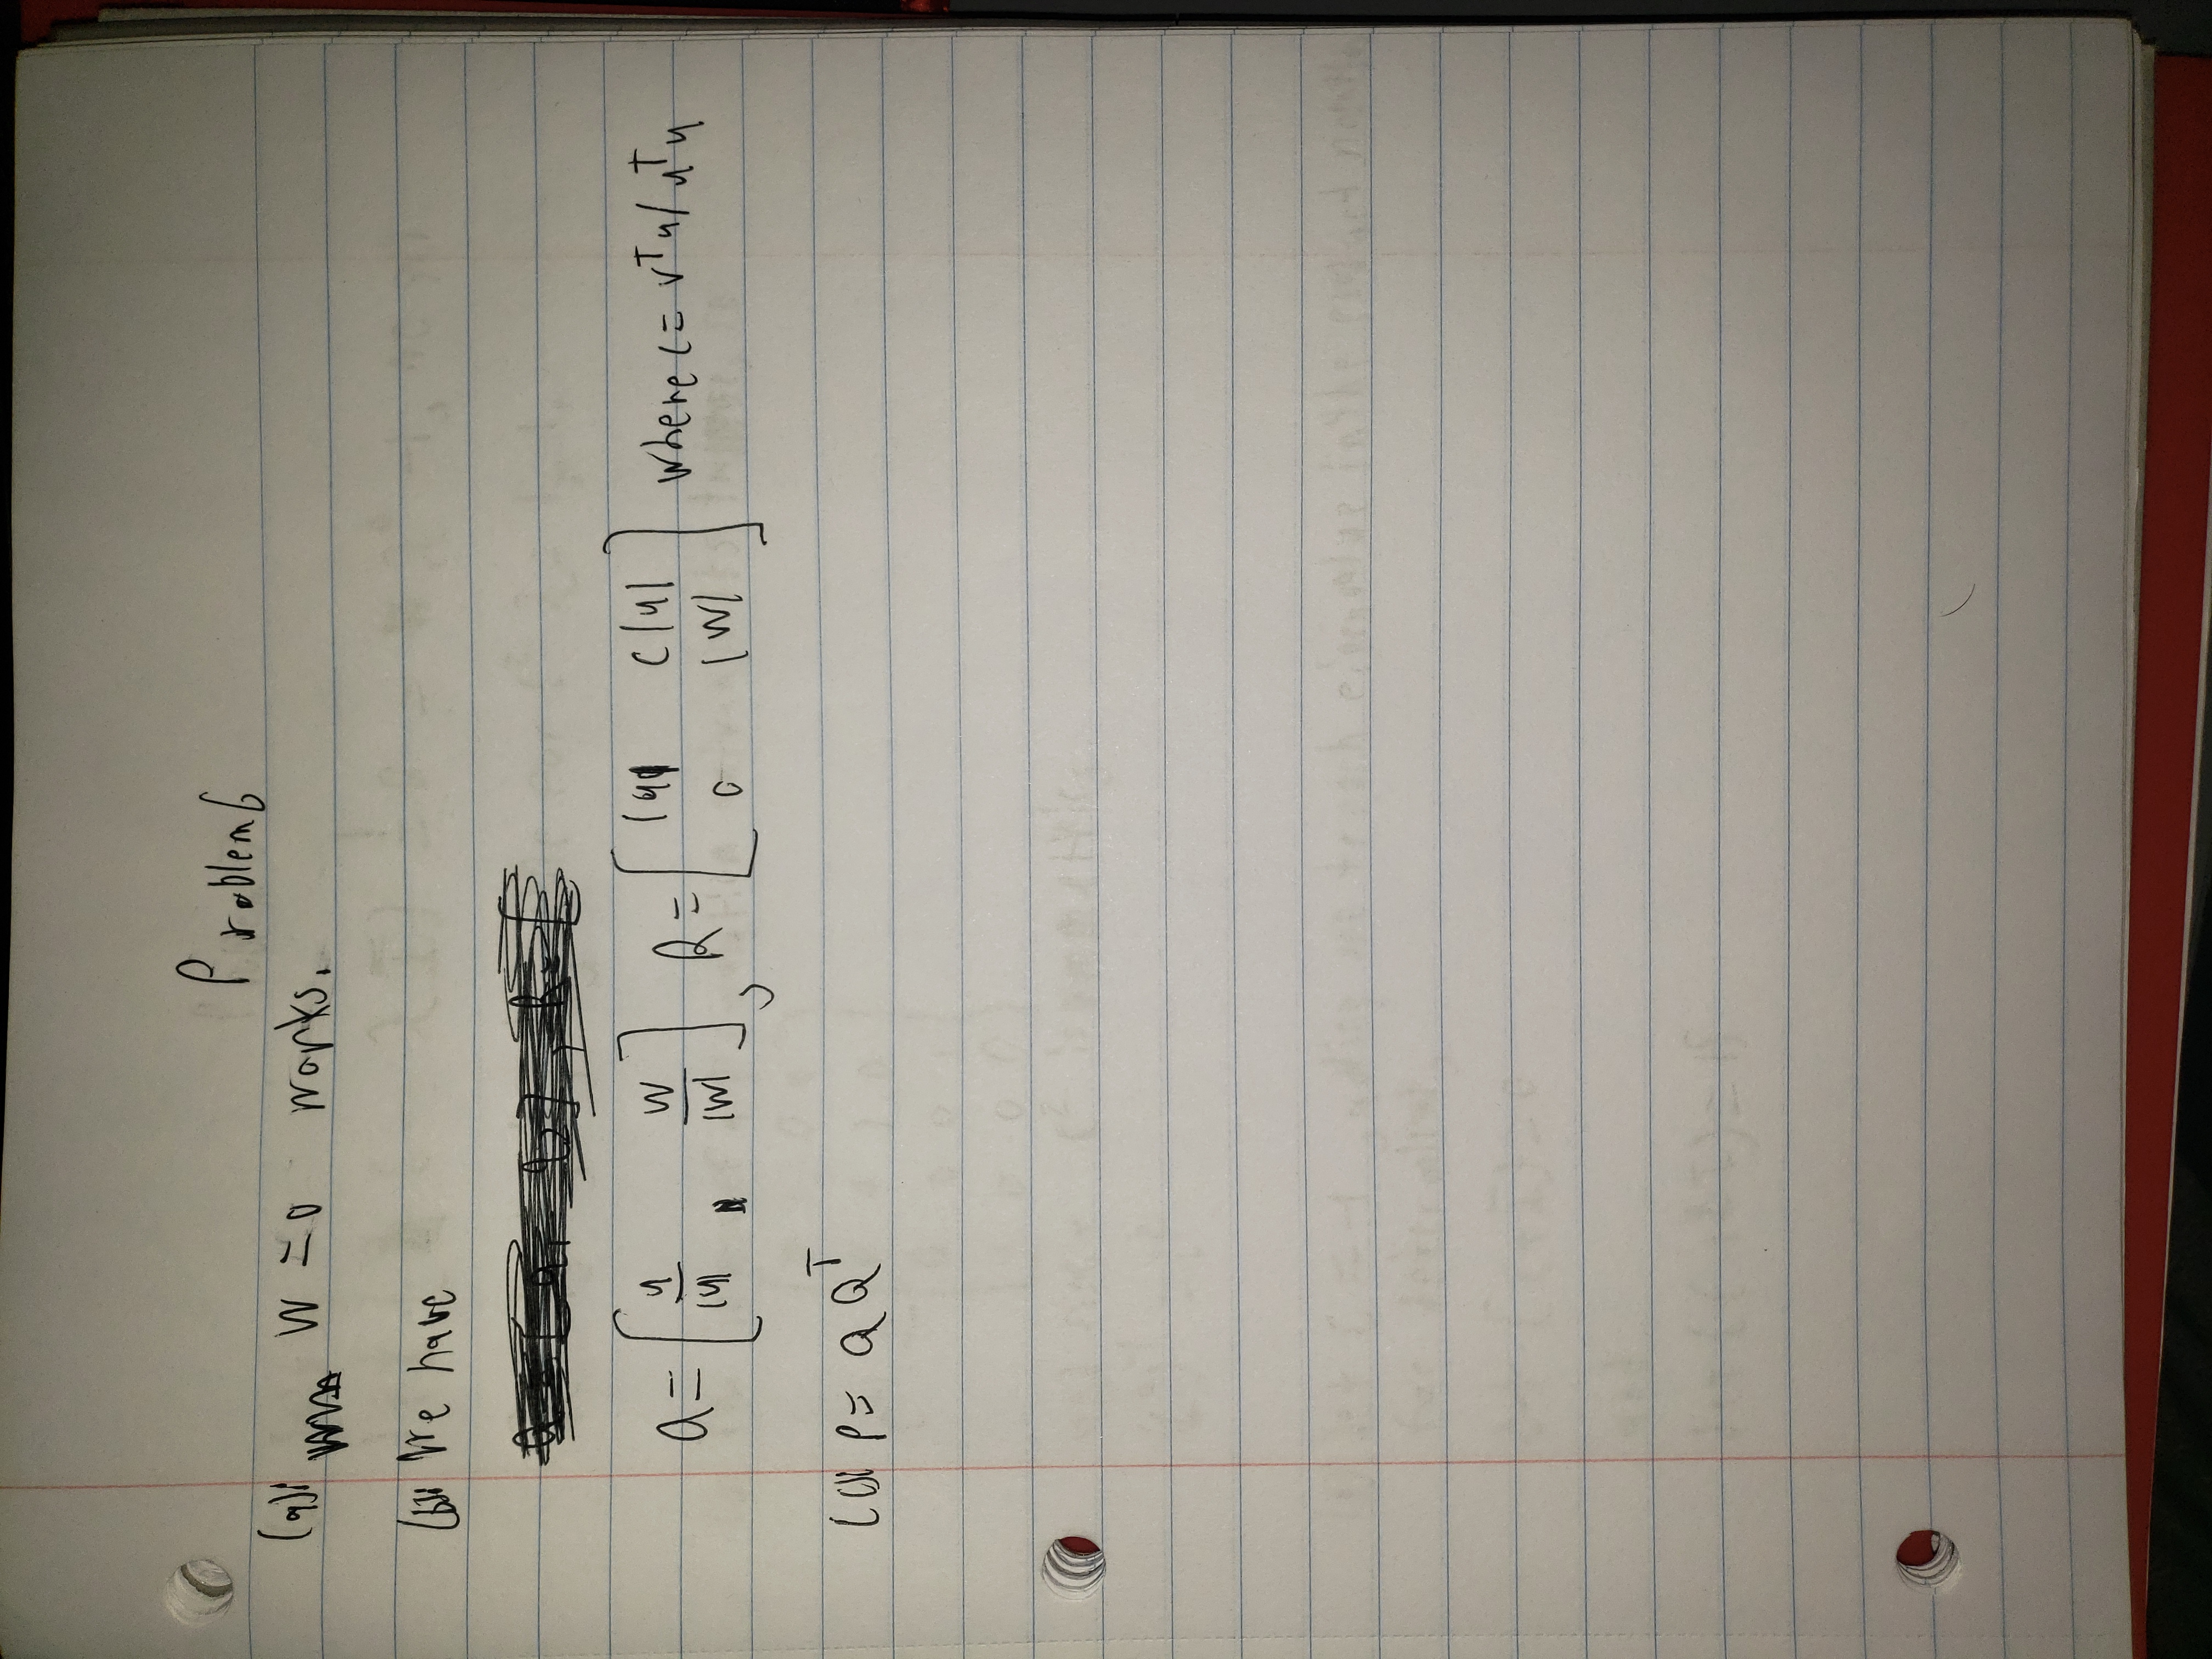 Problem 6
(a): W = 0 works.
(b): We have
Q = [ u/|u| , w/|w| ], R = [ |u| c|u| ; 0 |w| ] where c = v^T u / u^T u
(c): P = Q Q^T